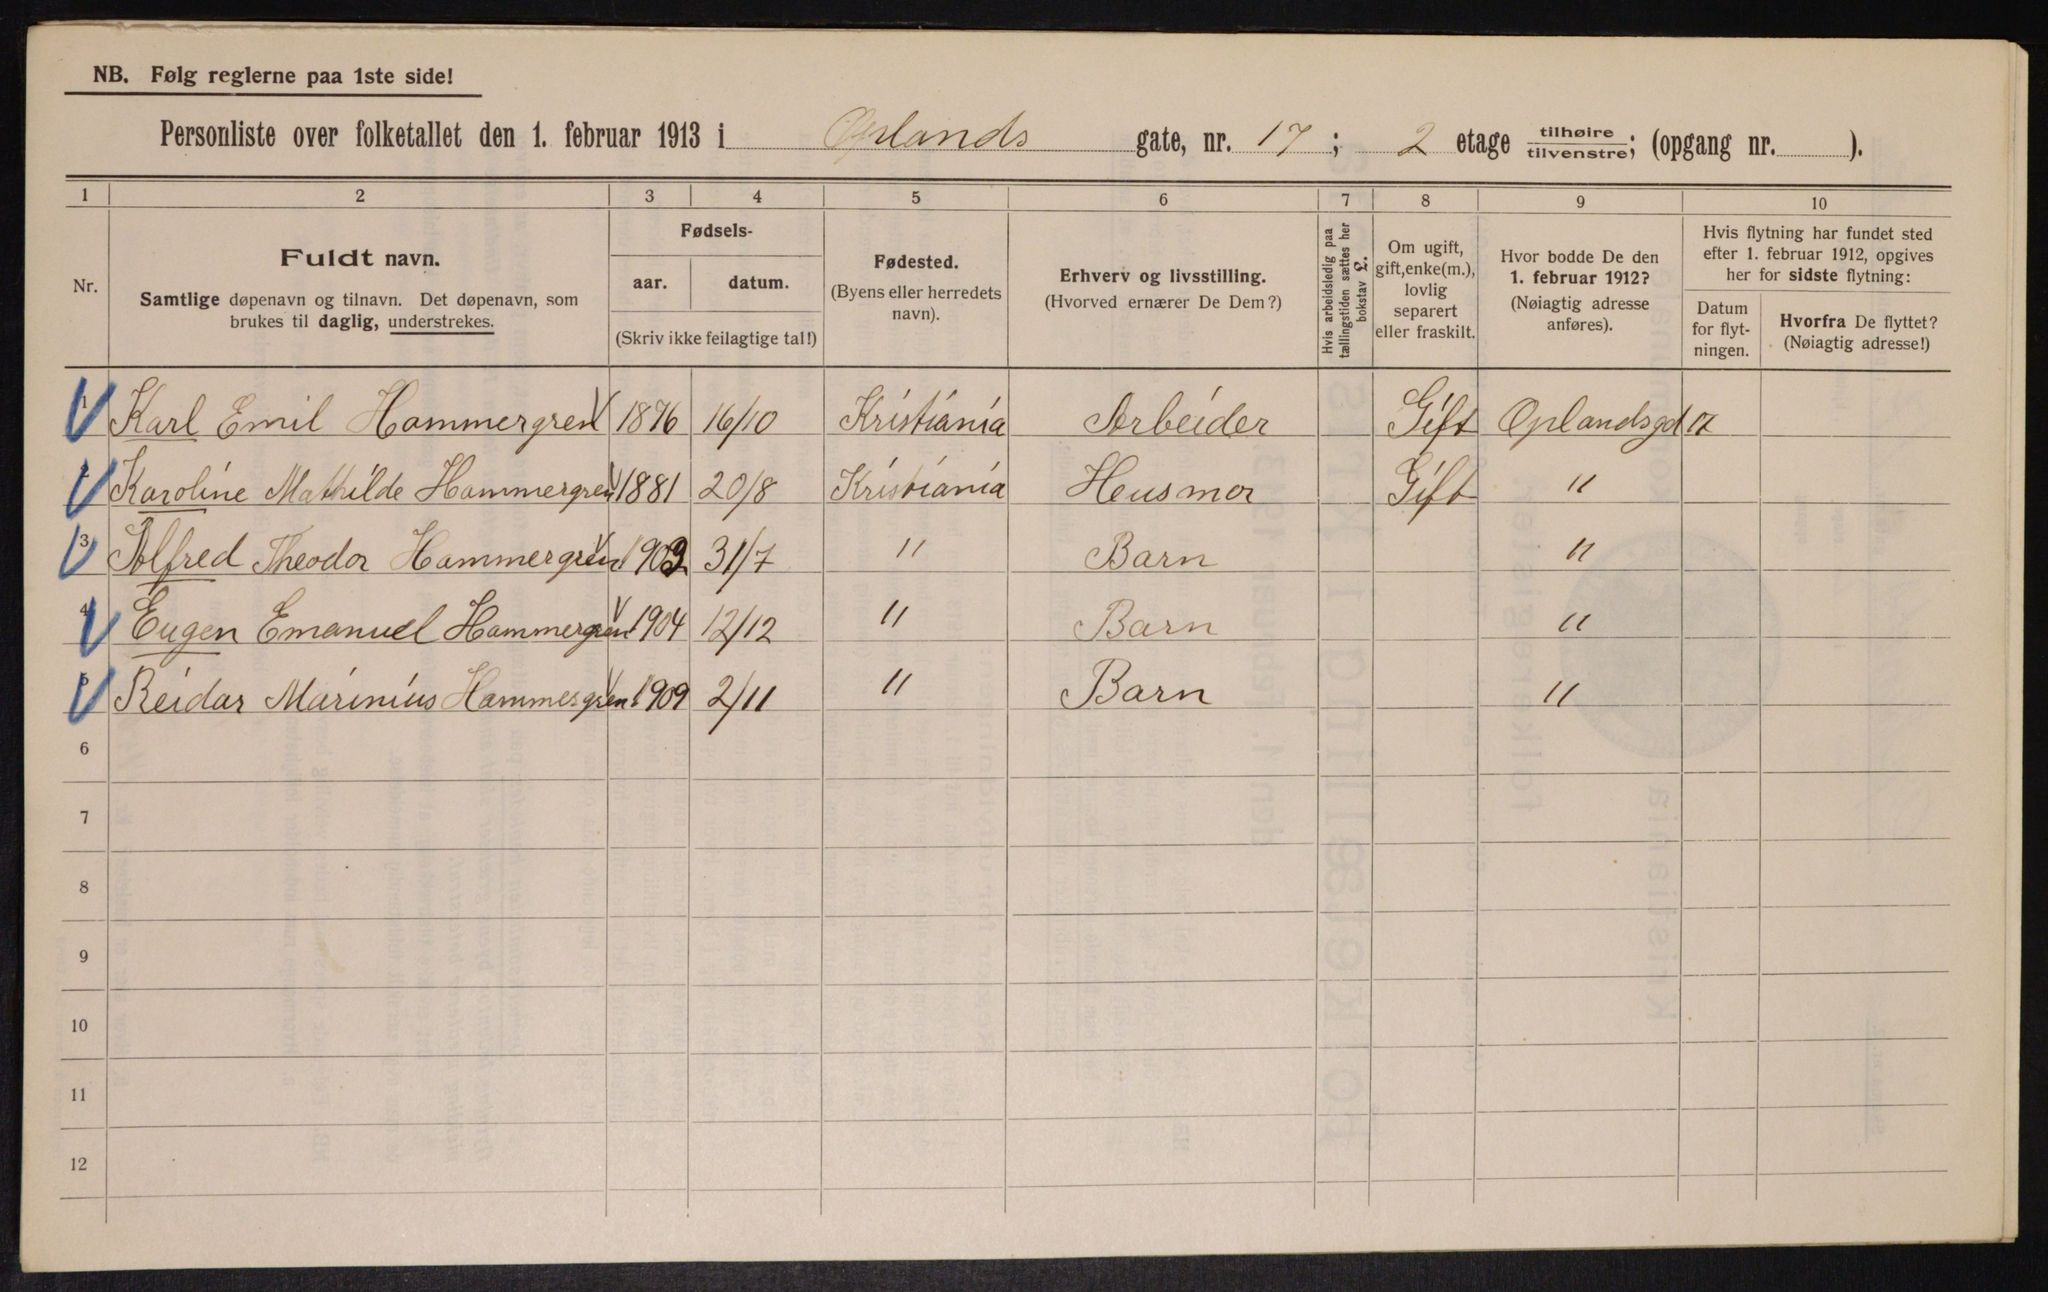 NB. Følg reglerne paa 1ste side!
Personliste over folketallet den 1. februar 1913 i Oplands gate, nr. 17; 2 etage tilhøire/tilvenstre; (opgang nr. ).
1 2 3 4 5 6 7 8 9 10
Nr.
Fuldt navn.
Samtlige døpenavn og tilnavn. Det døpenavn, som
brukes til daglig, understrekes.
Fødsels-
aar. datum.
(Skriv ikke feilagtige tal!)
Fødested.
(Byens eller herredets
navn).
Erhverv og livsstilling.
(Hvorved ernærer De Dem?)
Hvis arbeidsledig paa
tællingstiden sættes her
bokstav L.
Om ugift,
gift, enke(m.),
lovlig
separert
eller fraskilt.
Hvor bodde De den
1. februar 1912?
(Nøiagtig adresse
anføres).
Hvis flytning har fundet sted
efter 1. februar 1912, opgives
her for sidste flytning:
Datum
for flyt-
ningen.
Hvorfra De flyttet?
(Nøiagtig adresse!)
1 Karl Emil Hammergren 1876 16/10 Kristiania Arbeider Gift Oplandsgd 17
2 Karoline Mathilde Hammergren 1881 20/8 Kristiania Heusmor Gift "
3 Alfred Theodor Hammergren 31/7 " Barn "
4 Eugen Emanuel Hammergren 1904 12/12 " Barn "
5 Reidar Marinius Hammergren 1909 2/11 " Barn "
6
7
8
9
10
11
12